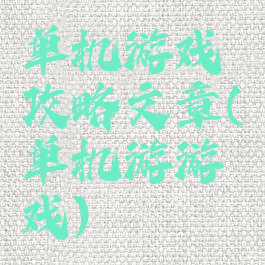 单机游戏
攻略文章(
单机游游
戏)